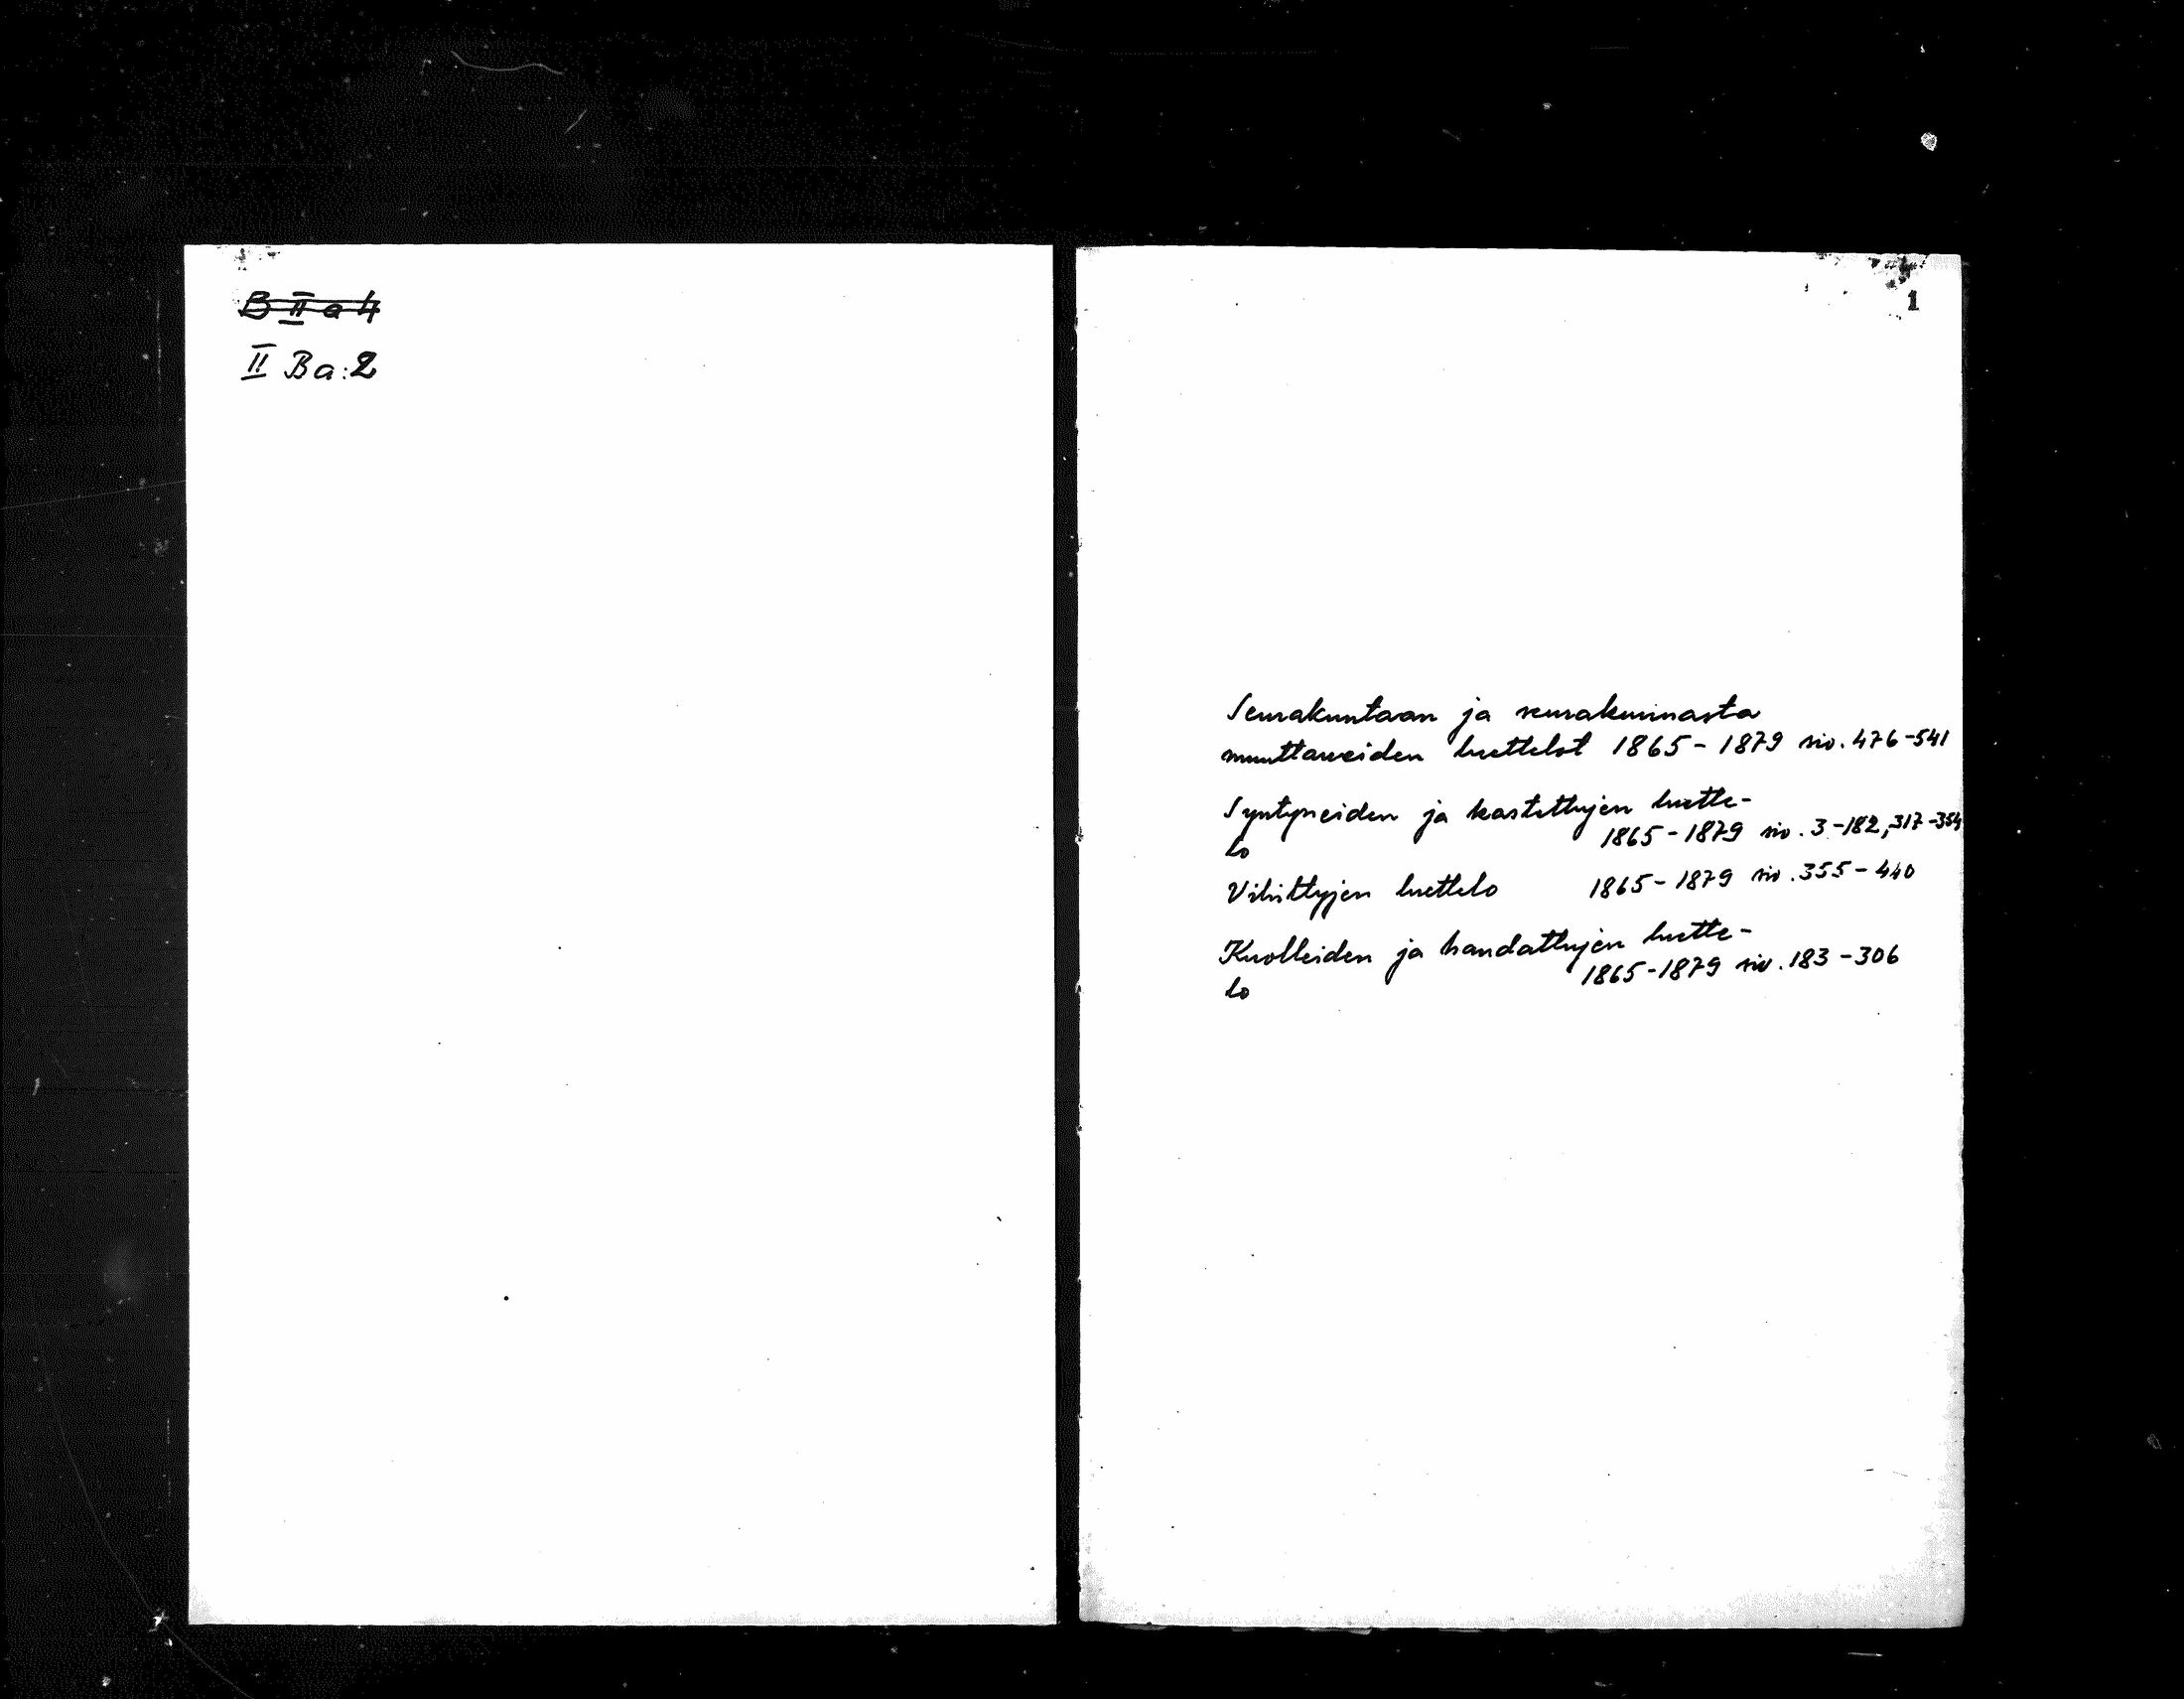 B II a 4
II Ba:2
1
Seurakuntaan ja seurakunnasta
muuttaneiden luettelot 1865-1879 siv. 476-541
Syntyneiden ja kastettujen luette-
lo 1865-1879 siv. 3-182, 317-354
Vihittyjen luettelo 1865-1879 siv. 355-440
Kuolleiden ja haudattujen luette-
lo 1865-1879 siv. 183-306